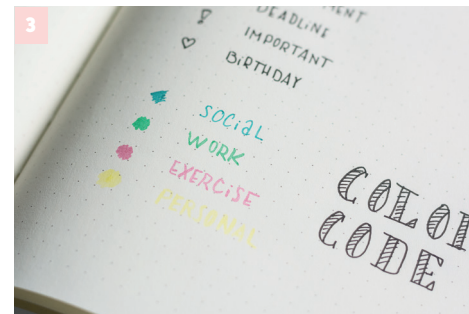 3
DEADLINE
IMPORTANT
BIRTHDAY
SOCIAL
WORK
EXERCISE
PERSONAL
CODE